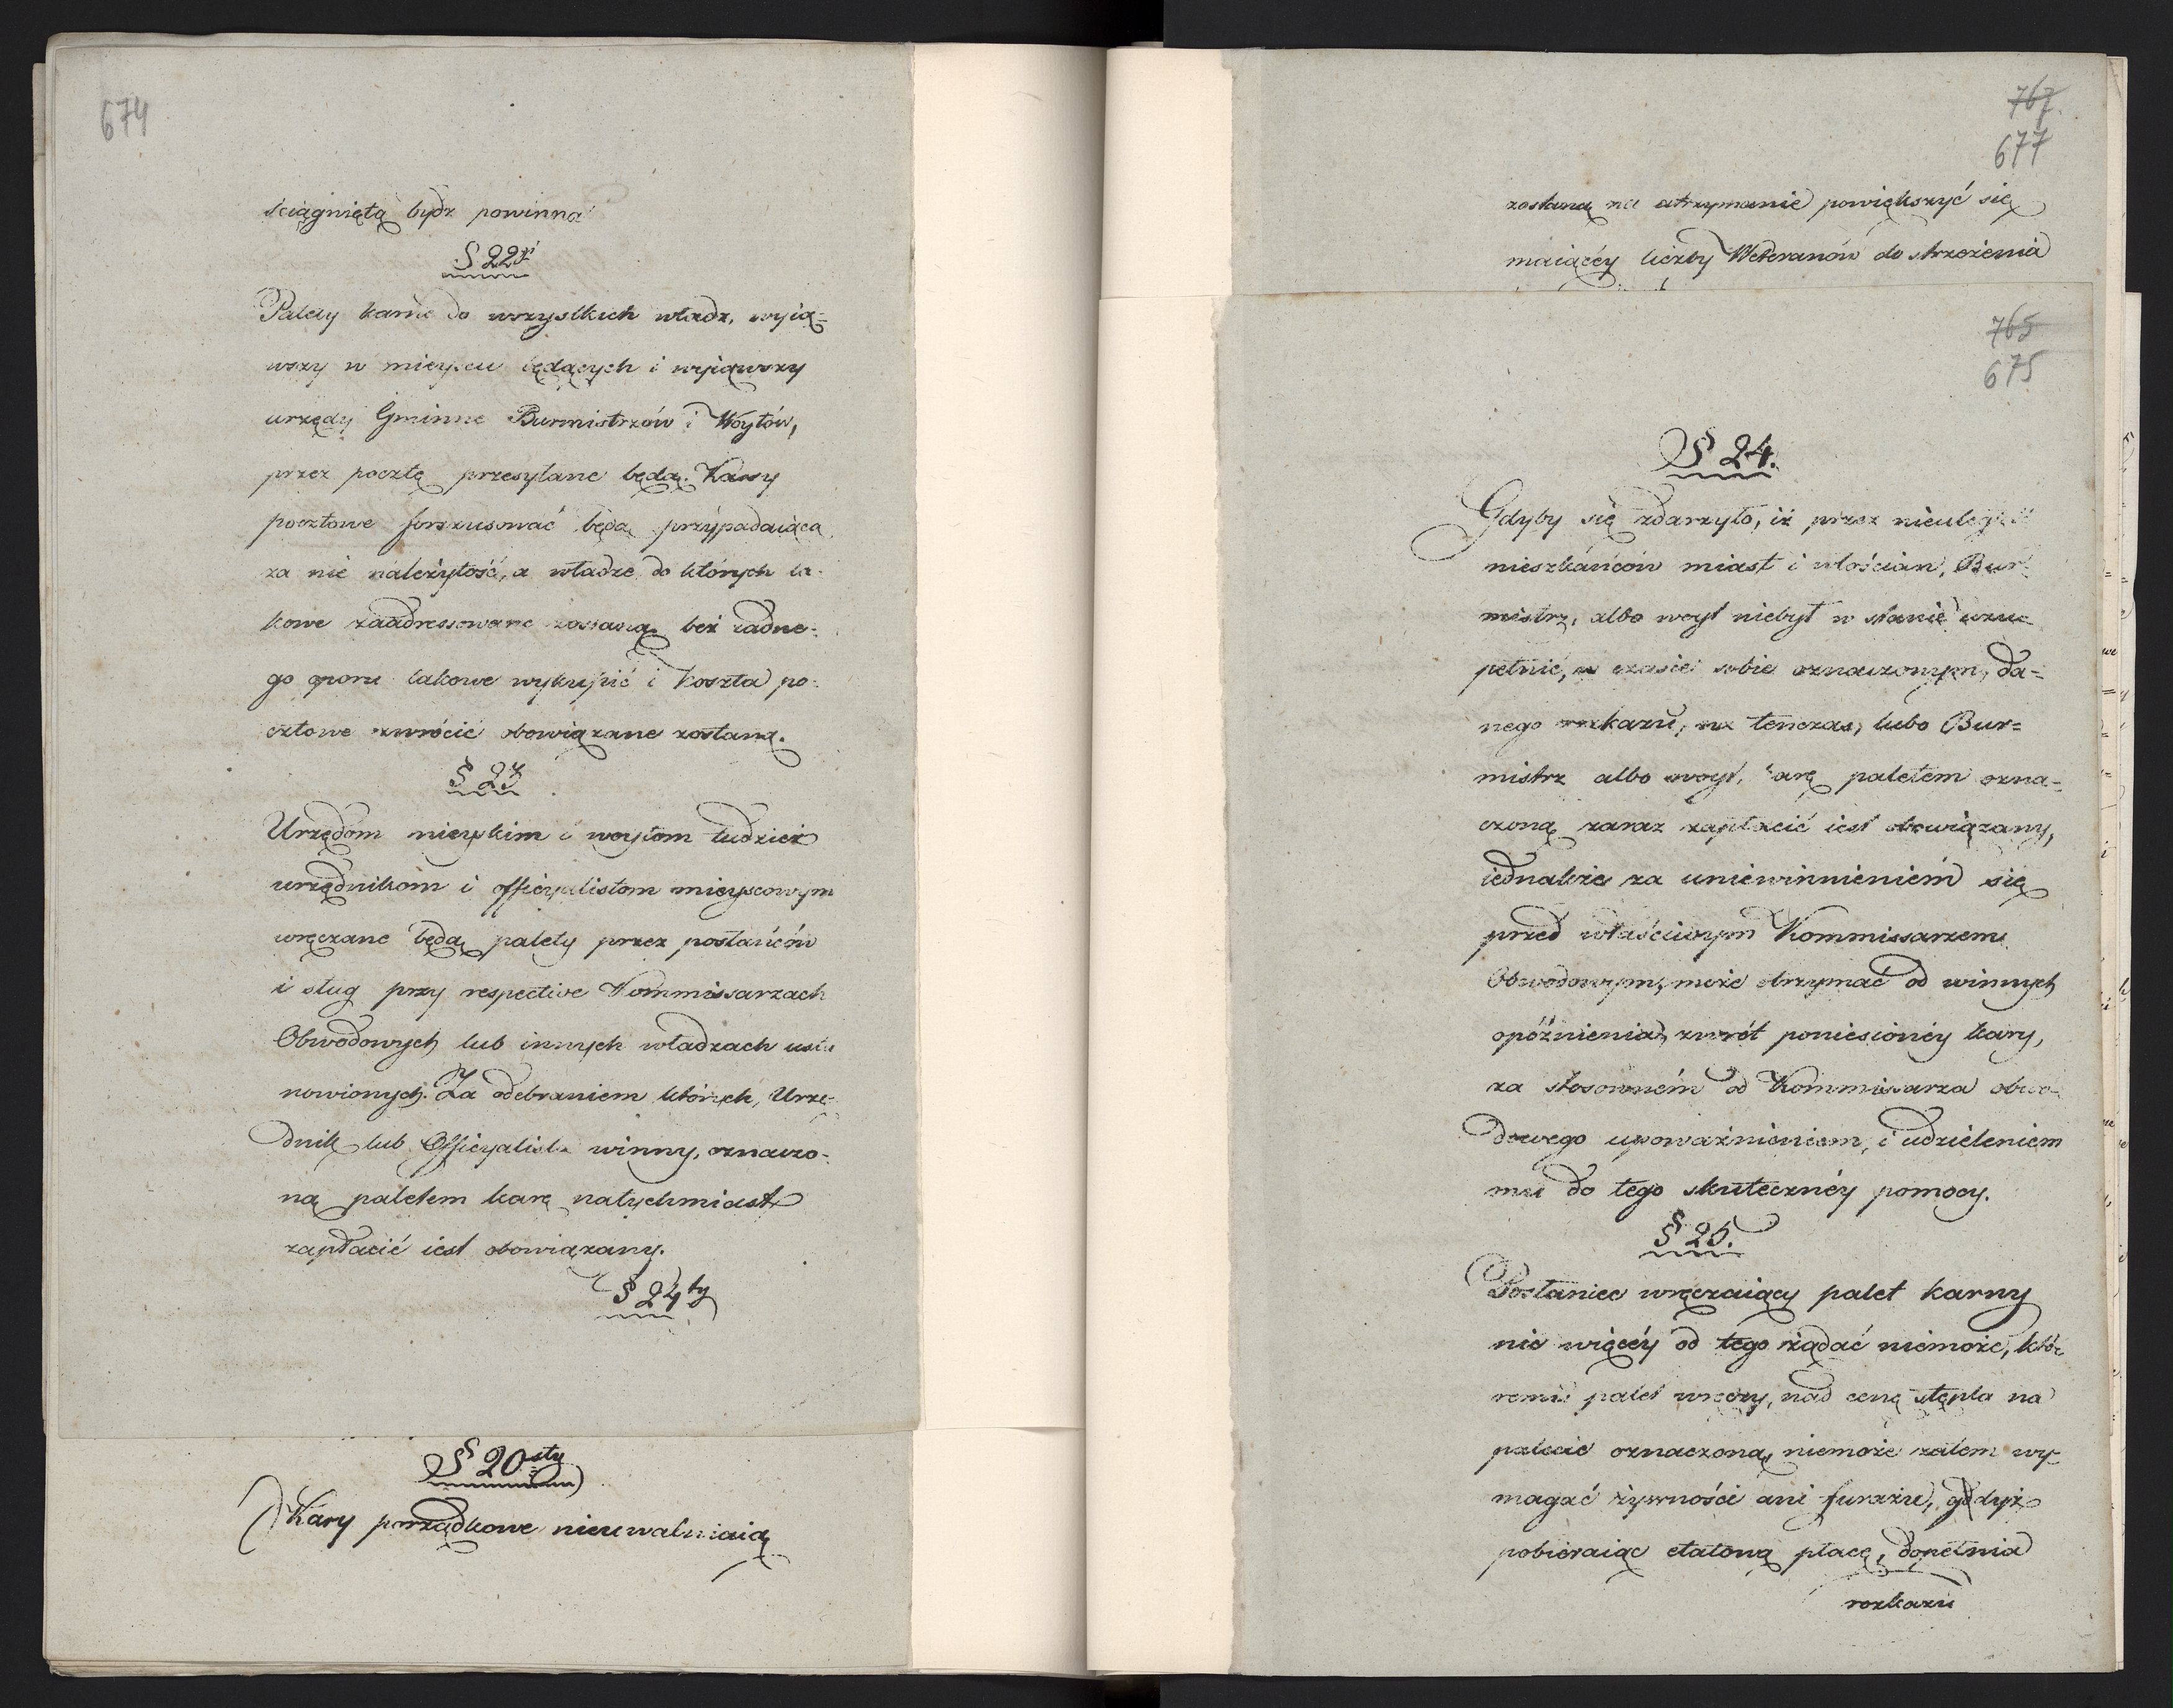 674
ściągniętą bydź powinna
§ 22gi
Palety karne do wszystkich władz, wyią=
wszy w mieyscu będących i wyiąwszy
urzędy Gminne Burmistrzów i Woytów,
przez pocztę przesyłane będą. Kassy
pocztowe forszusować będą przypadaiącą
za nie należytość, a władze do których ta-
kowe zaadressowane zostaną bez żadne-
go oporu takowe wykupić i koszta po-
cztowe zwrócić obowiązane zostaną.
§ 23
Urzędom mieyskim i woytom tudzież
urzędnikom i officyalistom mieyscowym
wręczane będą palety przez posłańców
i sług przy respective Kommissarzach
Obwodowych lub innych władzach usta
nowionych. Za odebraniem których, Urzę-
dnik lub Officyalista winny, oznaczo-
ną paletem karę natychmiast
zapłacić iest obowiązany.
§ 24ty
§ 20sty
Kary porządkowe nieuwalniaią
767.
677
zostaną na utrzymanie powiększyć się
maiącéy liczby Weteranów do strzeżenia
765
675
§ 24.
Gdyby się zdarzyło, iż przez nieuległość
mieszkańców miast i włościan, Bur-
mistrz, albo woyt niebył w stanie uzu-
pełnić, w czasie sobie oznaczonym, da=
nego rozkazu, na tenczas, lubo Bur=
mistrz albo woyt, karę paletem ozna-
czoną zaraz zapłacić iest obowiązany,
iednakże za uniewinnieniém się
przed właściwym Kommissarzem
Obwodowym, może otrzymać od winnych
opóźnienia, zwrót poniesionéy kary,
za stosowném od Kommissarza obwo-
dowego upoważnieniem, i udzieleniem
mu do tego skutecznéy pomocy.
§ 25.
Posłaniec wręczaiący palet karny
nic więcéy od tego żądać niemoże, któ-
remu palet wręczy, nad cenę stępla na
palecie oznaczoną, niemoże zatem wy-
magać żywności ani furażu, gdyż
pobieraiąc etatową płacę, dopełnia
rozkazu